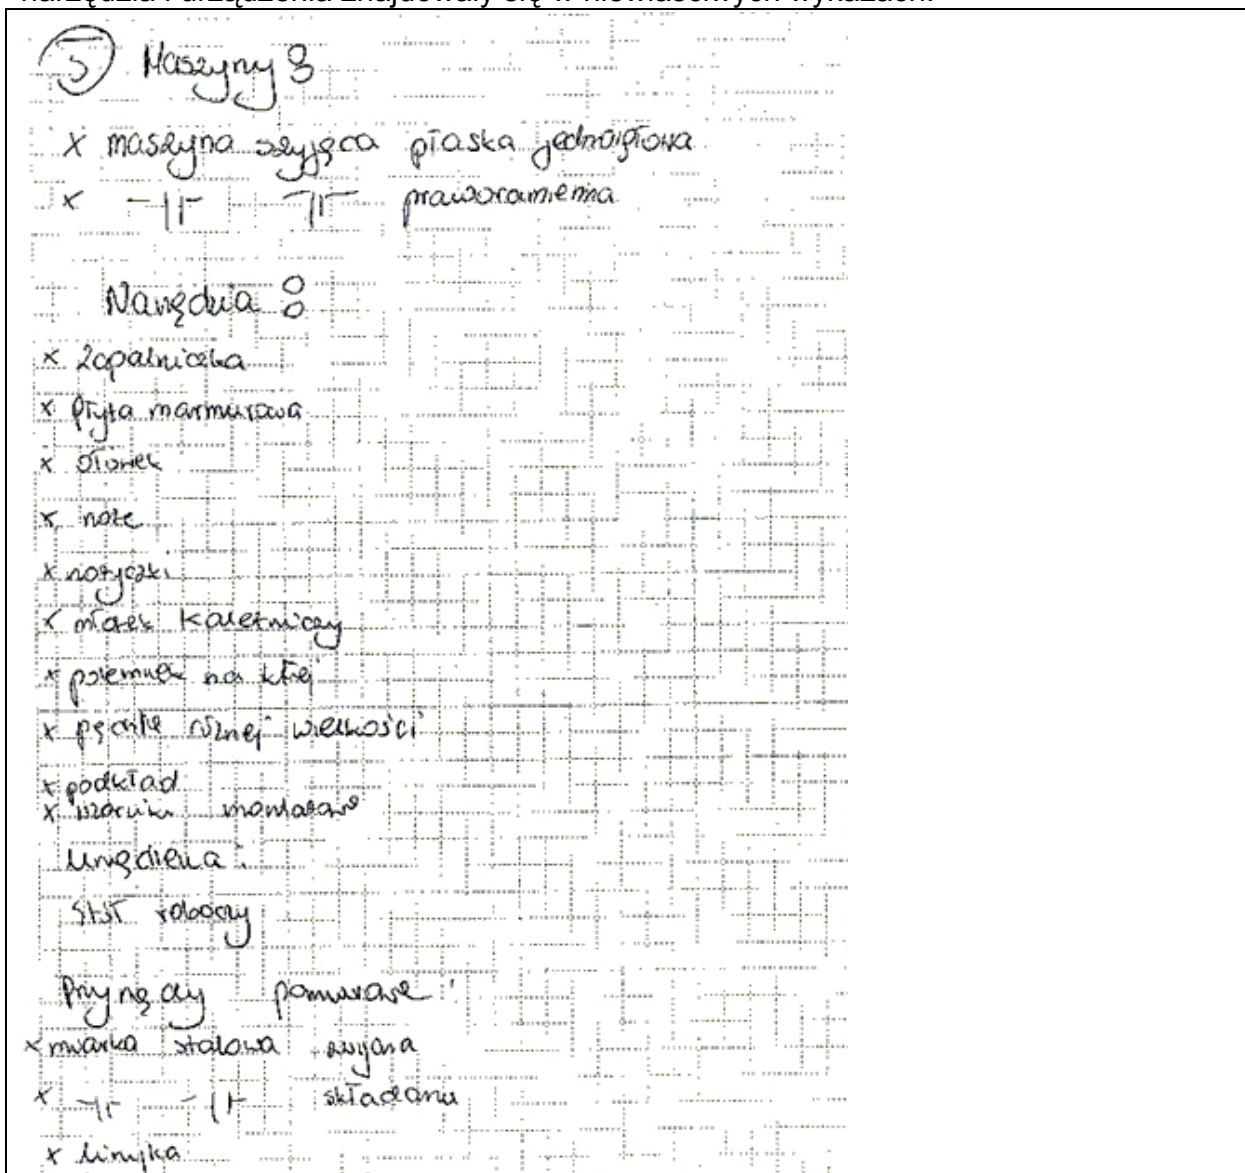 narzędzia i urządzenia znajdowały się w niewłaściwych wykazach.
5 Maszyny:
x maszyna szyjąca płaska jednoigłowa
x -||- -||- praworamienna
Narzędzia:
x zapalniczka
x płyta marmurowa
x ołówek
x noże
x nożyczki
x młotek kaletniczy
x pojemnik na klej
x pędzle różnej wielkości
x podkład
x wzorniki montażowe
Urządzenia:
stół roboczy
Przyrządy pomiarowe:
x miarka stalowa zwijana
x -||- -||- składana
x linijka